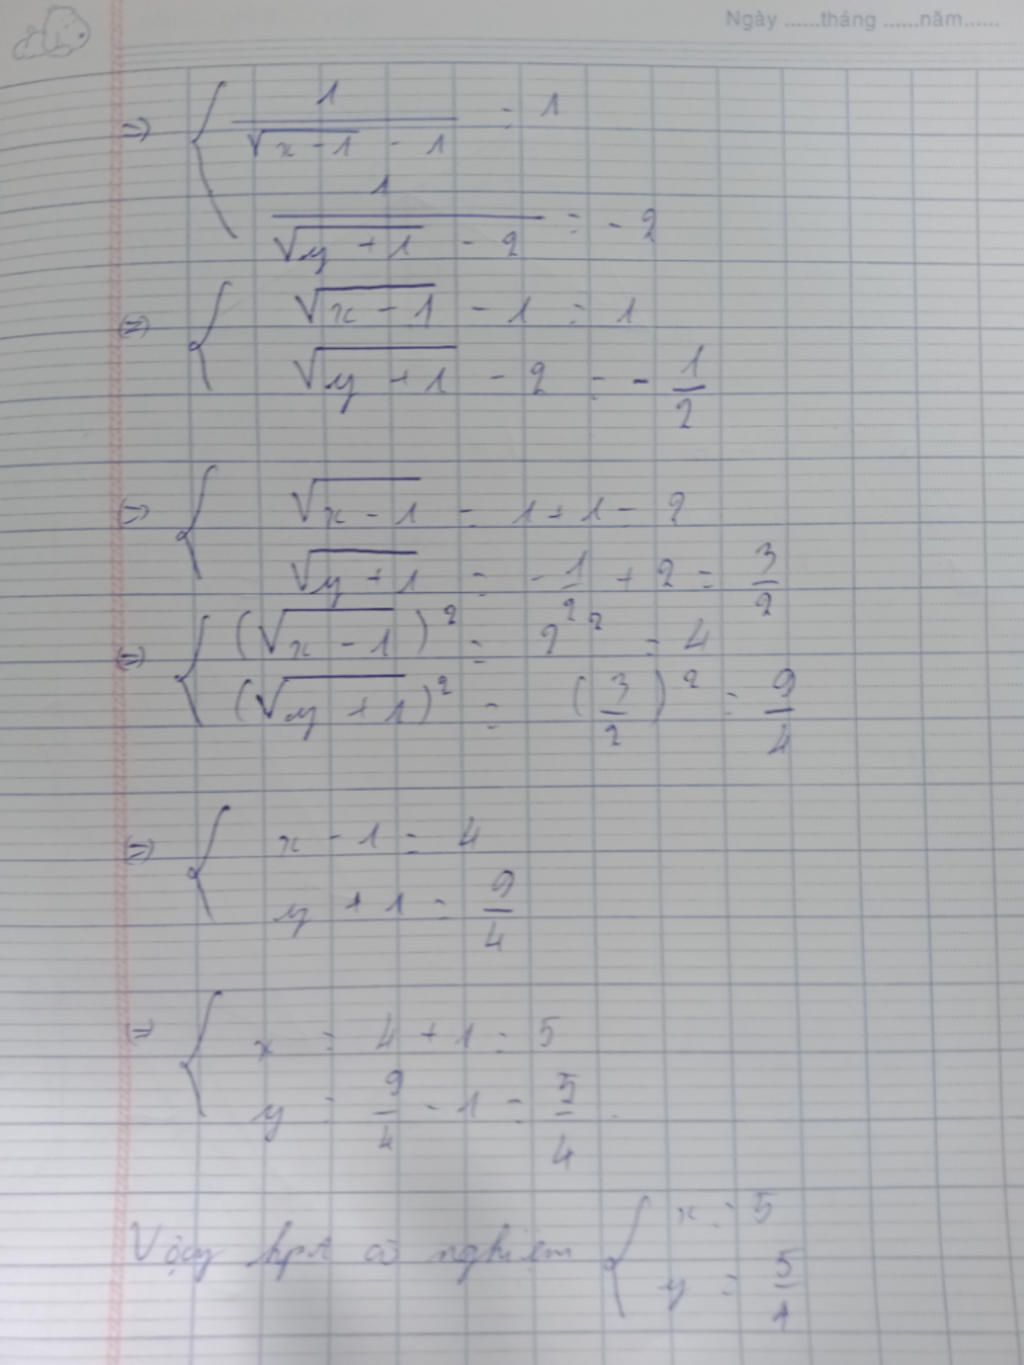 Ngày ......tháng ......năm......
=> { 1 / (√(x - 1) - 1) = 1
1 / (√(y + 1) - 2) = - 2
<=> { √(x - 1) - 1 = 1
√(y + 1) - 2 = - 1/2
<=> { √(x - 1) = 1 + 1 = 2
√(y + 1) = - 1/2 + 2 = 3/2
<=> { (√(x - 1))² = 2² = 4
(√(y + 1))² = (3/2)² = 9/4
<=> { x - 1 = 4
y + 1 = 9/4
<=> { x = 4 + 1 = 5
y = 9/4 - 1 = 5/4
Vậy hpt có nghiệm { x = 5
y = 5/4